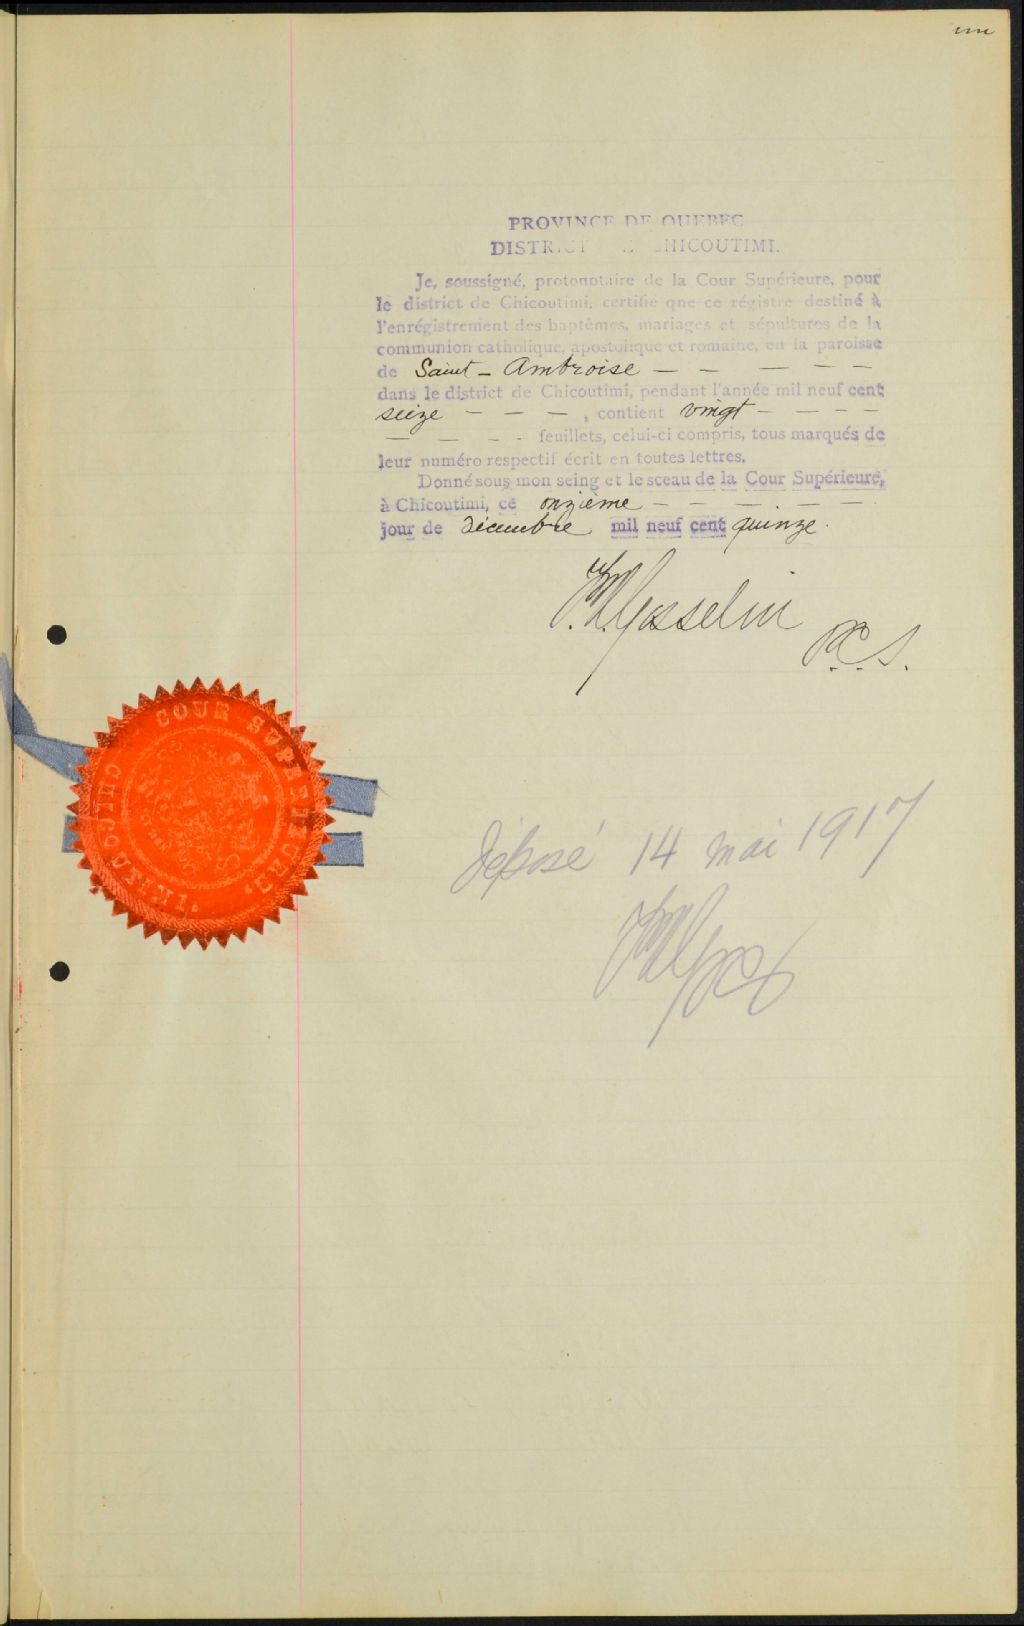 un
PROVINCE DE QUEBEC
DISTRICT DE CHICOUTIMI.
Je, soussigné, protonotaire de la Cour Supérieure, pour
le district de Chicoutimi, certifie qne ce régistre destiné à
l'enrégistrement des baptêmes, mariages et sépultures de la
communion catholique, apostolique et romaine, en la paroisse
de Saint-Ambroise — — — — —
dans le district de Chicoutimi, pendant l'année mil neuf cent
seize — — — —, contient vingt — — — —
— — — — feuillets, celui-ci compris, tous marqués de
leur numéro respectif écrit en toutes lettres.
Donné sous mon seing et le sceau de la Cour Supérieure,
à Chicoutimi, ce onzième — — — — —
jour de décembre mil neuf cent quinze.
Gosselin
P.C.S.
COUR SUPERIEURE, CHICOUTIMI.
Déposé 14 mai 1917